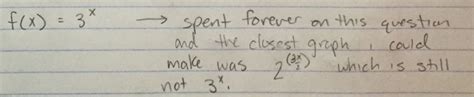 f(x) = 3^x → spent forever on this question
and the closest graph i could
make was 2^(3x/2) which is still
not 3^x.